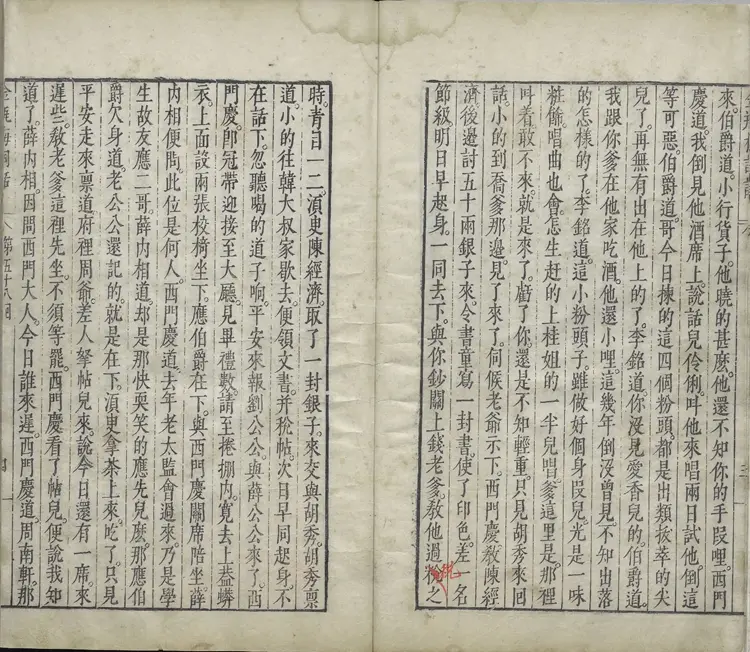 來伯爵道小行貨子他曉的甚麽他還不知你的手段哩西門
慶道我倒見他酒席上說話兒伶俐叫他來唱兩日試他倒這
等可惡伯爵道哥今日揀的這四個粉頭都是出類拔萃的尖
兒了再無有出在他上的了李銘道你沒見愛香兒的伯爵道
我跟你爹在他家吃酒他還小哩這幾年倒沒曾見不知出落
的怎樣的了李銘道這小粉頭子雖做好個身段兒光是一味
粧飾唱曲也會怎生赶的上桂姐的一半兒唱爹這里是那裡
叫着敢不來就是來了虧了你還是不知輕重只見胡秀來回
話小的到喬爹那邉見了來了伺候老爺示下西門慶敎陳經
濟後邉討五十兩銀子來令書童寫一封書使了印色差一名
節級明日早起身一同去下與你鈔關上錢老爹敎他過稅之
時青目一二湏史陳經濟取了一封銀子來交與胡秀胡秀禀
道小的往韓大叔家歇去便領文書并稅帖次日早同起身不
在話下忽聽喝的道子响平安來報劉公公與薛公公來了西
門慶卽冠帶迎接至大廳見畢禮數請至捲棚内寛去上葢蟒
衣上面設兩張校椅坐下應伯爵在下與西門慶關席陪坐薛
内相便問此位是何人西門慶道去年老太監會過來乃是學
生故友應二哥薛内相道却是那快耍笑的應先兒麽那應伯
爵欠身道老公公還記的就是在下湏史拿茶上來吃了只見
平安走來禀道府裡周爺差人拏帖兒來說今日還有一席來
遲些敎老爹這裡先坐不須等罷西門慶看了帖兒便說我知
道了薛内相因問西門大人今日誰來遲西門慶道周南軒那
第五十八囘